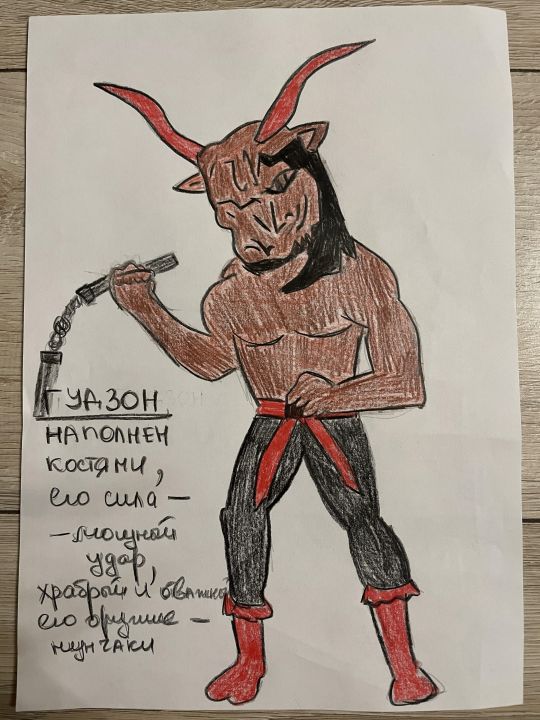 ГУДЗОН
НАПОЛНЕН
КОСТЯМИ,
его сила —
— мощный
удар,
храбрый и отважный
его оружие —
нунчаки